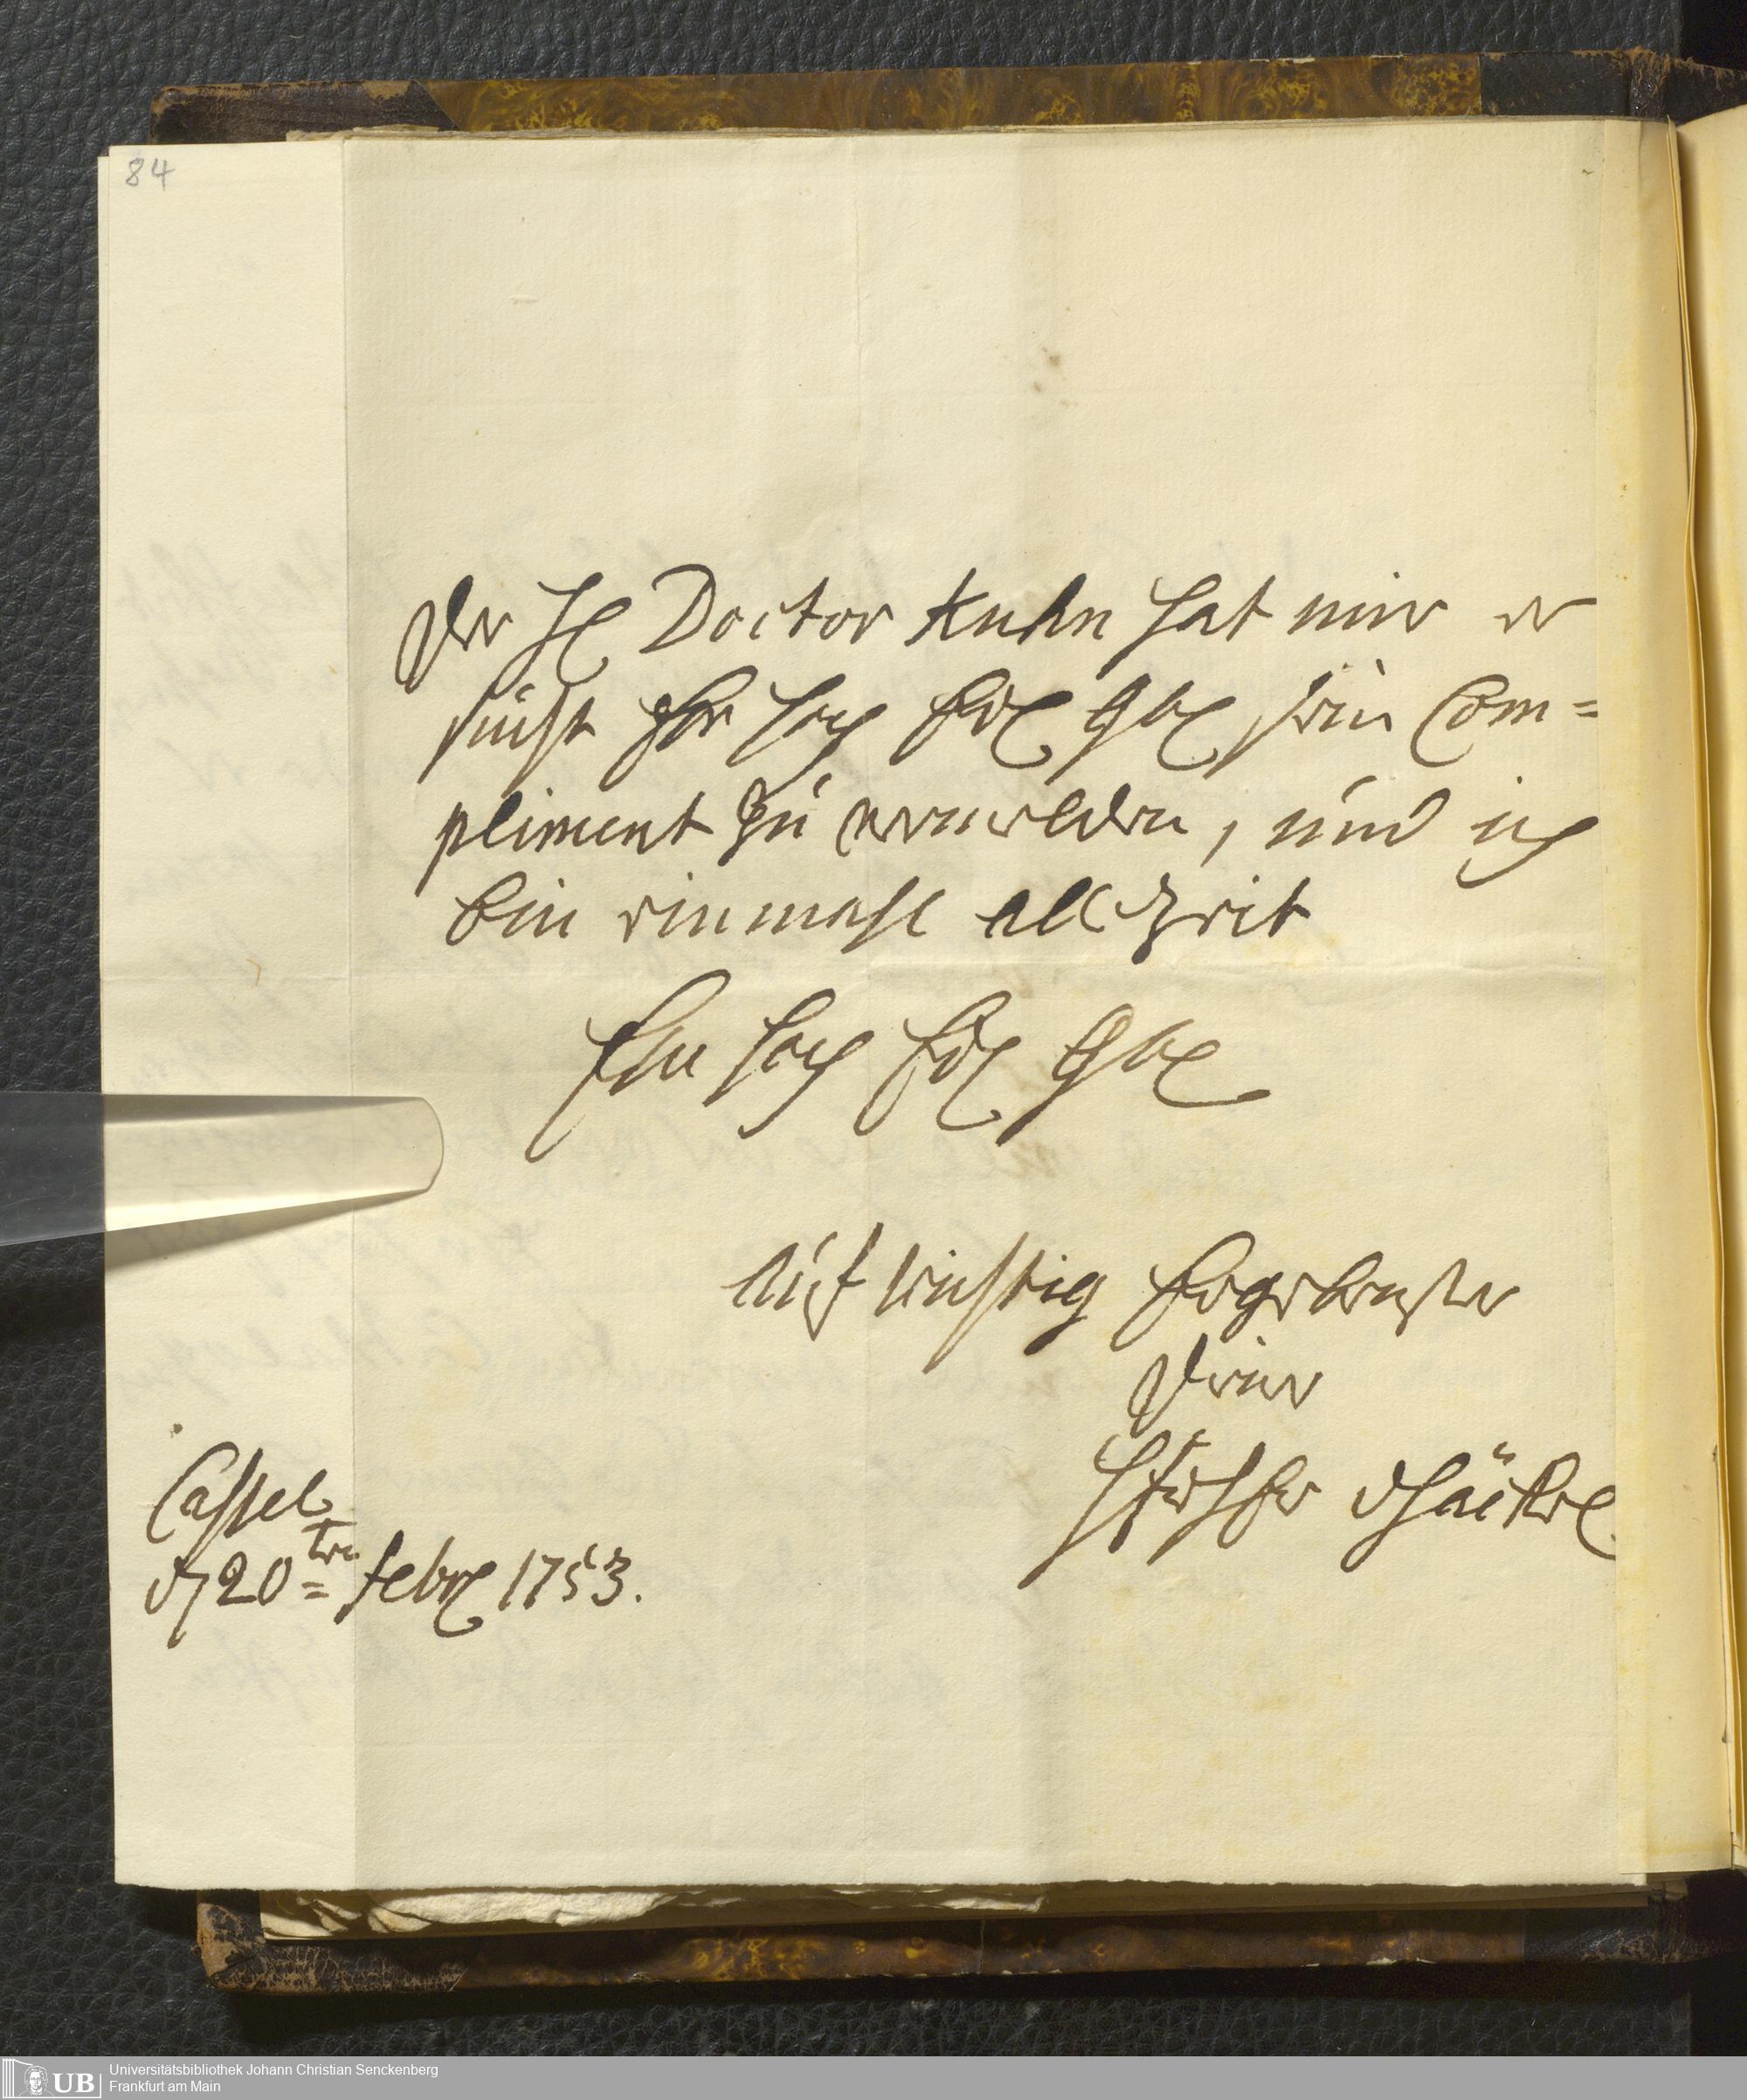 84
Der H Doctor Kuhn hat mir er
sucht Ihr hoch Edl Gb sein Com=
pliment zu vermelden, und ich
bin einmahl allzeit
Ihr hoch Edl Gb
Aufrichtig Ergebenster
Diener
Cassel
d 20ten febr 1753.
Universitätsbibliothek Johann Christian Senckenberg
Frankfurt am Main
UB